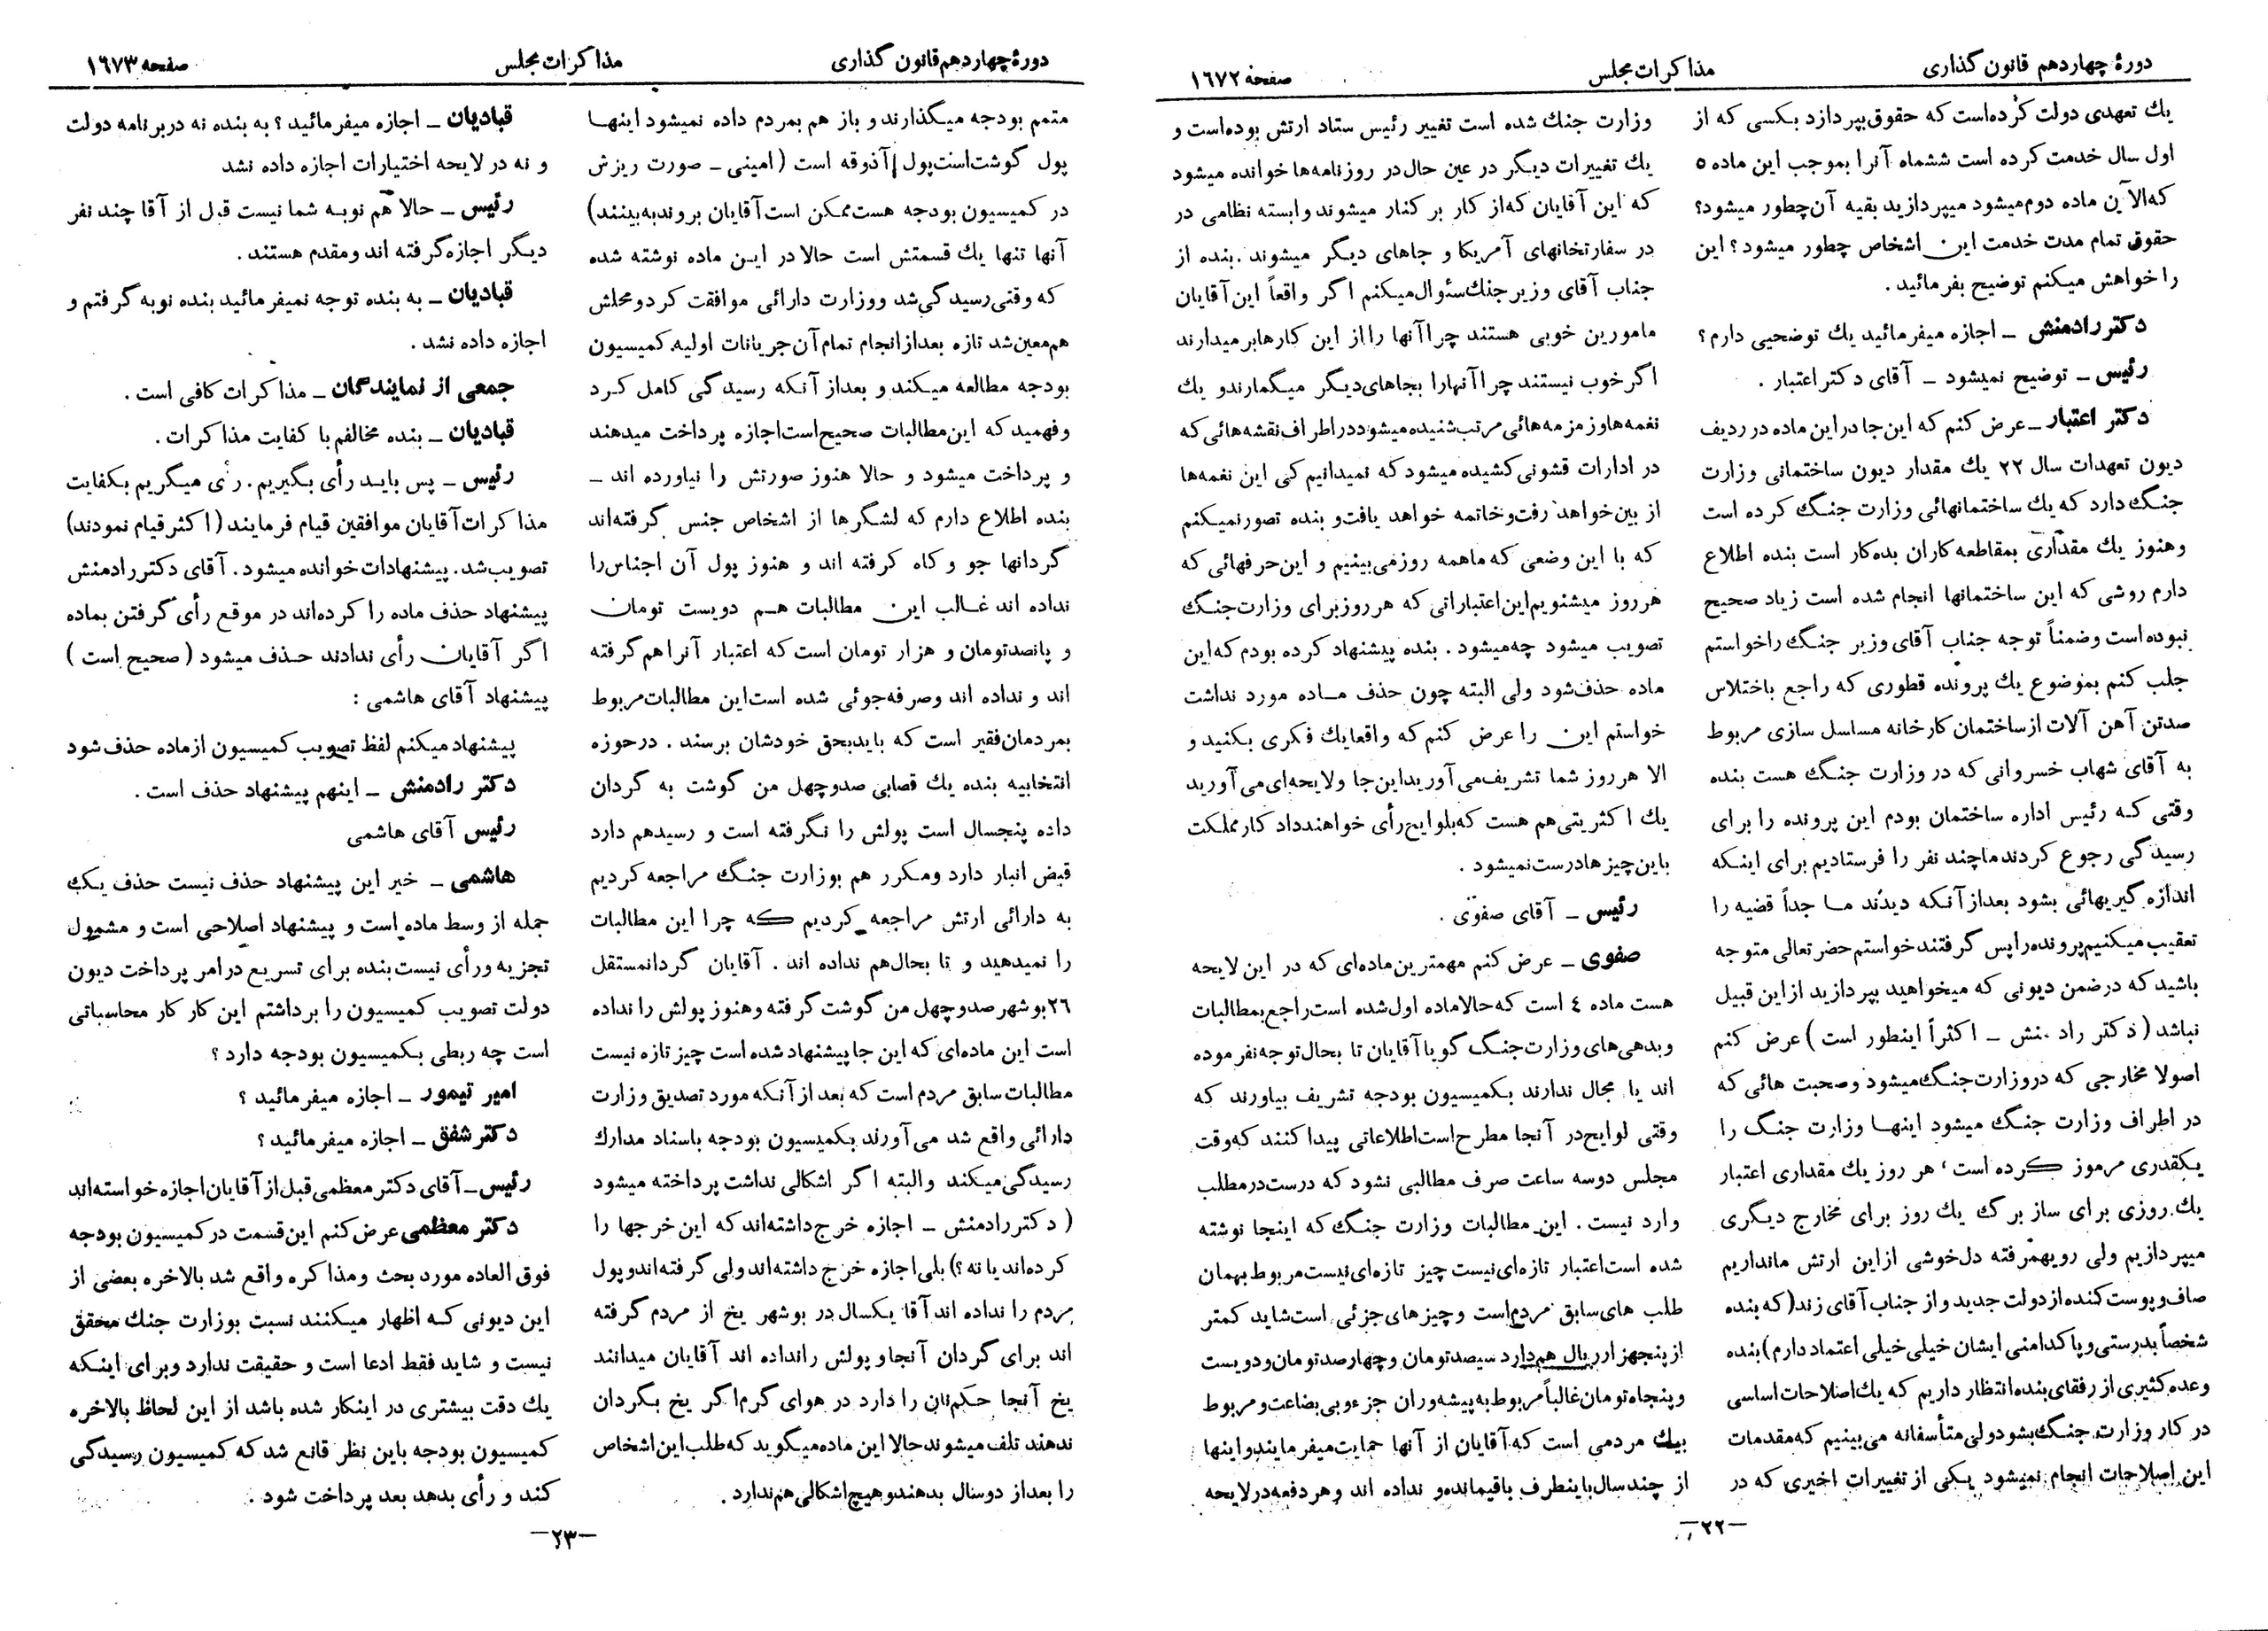 دورهٔ چهاردهم قانون گذاری
مذاکرات مجلس
صفحه ۱۶۷۲
یك تعهدی دولت کرده‌است که حقوق بپردازد بکسی که از
اول سال خدمت کرده است ششماه آنرا بموجب این ماده ۵
که الآن ماده دوم میشود میپردازید بقیه آن چطور میشود؟
حقوق تمام مدت خدمت این اشخاص چطور میشود؟ این
را خواهش میکنم توضیح بفرمائید .
دکتر رادمنش ـ اجازه میفرمائید یك توضحیی دارم؟
رئیس ـ توضیح نمیشود ـ آقای دکتر اعتبار .
دکتر اعتبار ـ عرض کنم که این جا در این ماده در ردیف
دیون تعهدات سال ۲۲ یك مقدار دیون ساختمانی وزارت
جنگ دارد که یك ساختمانهائی وزارت جنگ کرده است
و هنوز یك مقداری بمقاطعه کاران بده کار است بنده اطلاع
دارم روشی که این ساختمانها انجام شده است زیاد صحیح
نبوده است وضمناً توجه جناب آقای وزیر جنگ را خواستم
جلب کنم بموضوع یك پرونده قطوری که راجع باختلاس
صدتن آهن آلات از ساختمان کارخانه مسلسل سازی مربوط
به آقای شهاب خسروانی که در وزارت جنگ هست بنده
وقتی که رئیس اداره ساختمان بودم این پرونده را برای
رسیدگی رجوع کردند ما چند نفر را فرستادیم برای اینکه
اندازه گیریهائی بشود بعد از آنکه دیدند ما جداً قضیه را
تعقیب میکنیم پرونده را پس گرفتند خواستم حضرتعالی متوجه
باشید که در ضمن دیونی که میخواهید بپردازید از این قبیل
نباشد (دکتر رادمنش ـ اکثراً اینطور است) عرض کنم
اصولا مخارجی که در وزارت جنگ میشود وصحبت هائی که
در اطراف وزارت جنگ میشود اینها وزارت جنگ را
یکقدری مرموز کرده است، هر روز یك مقداری اعتبار
یك روزی برای ساز برگ یك روز برای مخارج دیگری
میپردازیم ولی رویهمرفته دل خوشی از این ارتش مانداریم
صاف و پوست کنده از دولت جدید و از جناب آقای زند (که بنده
شخصاً بدرستی و پاکدامنی ایشان خیلی خیلی اعتماد دارم) بنده
و عده کثیری از رفقای بنده انتظار داریم که یك اصلاحات اساسی
در کار وزارت جنگ بشود ولی متأسفانه می بینیم که مقدمات
این اصلاحات انجام نمیشود یکی از تغییرات اخیری که در
وزارت جنك شده است تغییر رئیس ستاد ارتش بوده است و
یك تغییرات دیگر در عین حال در روزنامه ها خوانده میشود
که این آقایان که از کار بر کنار میشوند وابسته نظامی در
در سفارتخانهای آمریکا و جاهای دیگر میشوند . بنده از
جناب آقای وزیر جنك سئوال میکنم اگر واقعاً این آقایان
مامورین خوبی هستند چرا آنها را از این کارها برمیدارند
اگر خوب نیستند چرا آنها را بجاهای دیگر میگمارند و یك
نغمه ها و زمزمه هائی مرتب شنیده میشود در اطراف نقشه هائی که
در ادارات قشونی کشیده میشود که نمیدانیم کی این نغمه ها
از بین خواهد رفت و خاتمه خواهد یافت و بنده تصور نمیکنم
که با این وضعی که ما همه روز می بینیم و این حرفهائی که
هر روز میشنویم این اعتباراتی که هر روز برای وزارت جنگ
تصویب میشود چه میشود . بنده پیشنهاد کرده بودم که این
ماده حذف شود ولی البته چون حذف ماده مورد نداشت
خواستم این را عرض کنم که واقعا یك فکری بکنید و
الا هر روز شما تشریف می آورید این جا و لایحه ای می آورید
یك اکثریتی هم هست که بلوایح رأی خواهند داد کار مملکت
باین چیزها درست نمیشود .
رئیس ـ آقای صفوی .
صفوی ـ عرض کنم مهمترین ماده‌ای که در این لایحه
هست ماده ٤ است که حالا ماده اول شده است راجع بمطالبات
و بدهی های وزارت جنگ گویا آقایان تا بحال توجه نفرموده
اند یا مجال ندارند بکمیسیون بودجه تشریف بیاورند که
وقتی لوایح در آنجا مطرح است اطلاعاتی پیدا کنند که وقت
مجلس دوسه ساعت صرف مطالبی نشود که درست در مطلب
وارد نیست . این مطالبات وزارت جنگ که اینجا نوشته
شده است اعتبار تازه ای نیست چیز تازه ای نیست مربوط بهمان
طلب های سابق مردم است و چیزهای جزئی است شاید کمتر
از پنجهزار ریال هم دارد سیصد تومان و چهارصد تومان و دویست
و پنجاه تومان غالباً مربوط به پیشه وران جزء و بی بضاعت و مربوط
بیك مردمی است که آقایان از آنها حمایت میفرمایند و اینها
از چند سال باینطرف باقیمانده و نداده اند و هر دفعه در لایحه
ـ۲۲ـ
دورهٔ چهاردهم قانون گذاری
مذاکرات مجلس
صفحه ۱۶۷۳
متمم بودجه میگذارند و باز هم بمردم داده نمیشود اینها
پول گوشت است پول آذوقه است (امینی ـ صورت ریزش
در کمیسیون بودجه هست ممکن است آقایان بروند به بینند)
آنها تنها یك قسمتش است حالا در این ماده نوشته شده
که وقتی رسیدگی شد و وزارت دارائی موافقت کرد و محلش
هم معین شد تازه بعد از انجام تمام آن جریانات اولیه کمیسیون
بودجه مطالعه میکند و بعد از آنکه رسیدگی کامل کرد
و فهمید که این مطالبات صحیح است اجازه پرداخت میدهند
و پرداخت میشود و حالا هنوز صورتش را نیاورده اند ـ
بنده اطلاع دارم که لشگرها از اشخاص جنس گرفته‌اند
گردانها جو و کاه گرفته اند و هنوز پول آن اجناس را
نداده اند غالب این مطالبات هم دویست تومان
و پانصد تومان و هزار تومان است که اعتبار آنرا هم گرفته
اند و نداده اند وصرفه جوئی شده است این مطالبات مربوط
بمردمان فقیر است که باید بحق خودشان برسند . در حوزه
انتخابیه بنده یك قصابی صد و چهل من گوشت به گردان
داده پنجسال است پولش را نگرفته است و رسید هم دارد
قبض انبار دارد و مکرر هم بوزارت جنگ مراجعه کردیم
به دارائی ارتش مراجعه کردیم که چرا این مطالبات
را نمیدهید و تا بحال هم نداده اند . آقایان گردان مستقل
۲۶ بوشهر صد و چهل من گوشت گرفته و هنوز پولش را نداده
است این ماده‌ای که این جا پیشنهاد شده است چیز تازه نیست
مطالبات سابق مردم است که بعد از آنکه مورد تصدیق وزارت
دارائی واقع شد می آورند بکمیسیون بودجه باسناد مدارك
رسیدگی میکند و البته اگر اشکالی نداشت پرداخته میشود
(دکتر رادمنش ـ اجازه خرج داشته‌اند که این خرجها را
کرده‌اند یا نه؟) بلی اجازه خرج داشته اند ولی گرفته اند و پول
مردم را نداده اند آقا یکسال در بوشهر یخ از مردم گرفته
اند برای گردان آنجا و پولش را نداده اند آقایان میدانند
یخ آنجا حکم نان را دارد در هوای گرم اگر یخ بگردان
ندهند تلف میشوند حالا این ماده میگوید که طلب این اشخاص
را بعد از دو سال بدهند و هیچ اشکالی هم ندارد .
قبادیان ـ اجازه میفرمائید؟ به بنده نه در برنامه دولت
و نه در لایحه اختیارات اجازه داده نشد
رئیس ـ حالا هم نوبه شما نیست قبل از آقا چند نفر
دیگر اجازه گرفته اند و مقدم هستند .
قبادیان ـ به بنده توجه نمیفرمائید بنده نوبه گرفتم و
اجازه داده نشد .
جمعی از نمایندگان ـ مذاکرات کافی است .
قبادیان ـ بنده مخالفم با کفایت مذاکرات .
رئیس ـ پس باید رأی بگیریم . رأی میگریم بکفایت
مذاکرات آقایان موافقین قیام فرمایند (اکثر قیام نمودند)
تصویب شد . پیشنهادات خوانده میشود . آقای دکتر رادمنش
پیشنهاد حذف ماده را کرده‌اند در موقع رأی گرفتن بماده
اگر آقایان رأی ندادند حذف میشود (صحیح است)
پیشنهاد آقای هاشمی :
پیشنهاد میکنم لفظ تصویب کمیسیون از ماده حذف شود
دکتر رادمنش ـ اینهم پیشنهاد حذف است .
رئیس آقای هاشمی
هاشمی ـ خیر این پیشنهاد حذف نیست حذف یک
جمله از وسط ماده است و پیشنهاد اصلاحی است و مشمول
تجزیه و رأی نیست بنده برای تسریع در امر پرداخت دیون
دولت تصویب کمیسیون را برداشتم این کار کار محاسباتی
است چه ربطی بکمیسیون بودجه دارد ؟
امیر تیمور ـ اجازه میفرمائید ؟
دکتر شفق ـ اجازه میفرمائید ؟
رئیس ـ آقای دکتر معظمی قبل از آقایان اجازه خواسته‌اند
دکتر معظمی عرض کنم این قسمت در کمیسیون بودجه
فوق العاده مورد بحث و مذاکره واقع شد بالاخره بعضی از
این دیونی که اظهار میکنند نسبت بوزارت جنك محقق
نیست و شاید فقط ادعا است و حقیقت ندارد و برای اینکه
یك دقت بیشتری در اینکار شده باشد از این لحاظ بالاخره
کمیسیون بودجه باین نظر قانع شد که کمیسیون رسیدگی
کند و رأی بدهد بعد پرداخت شود .
ـ۲۳ـ